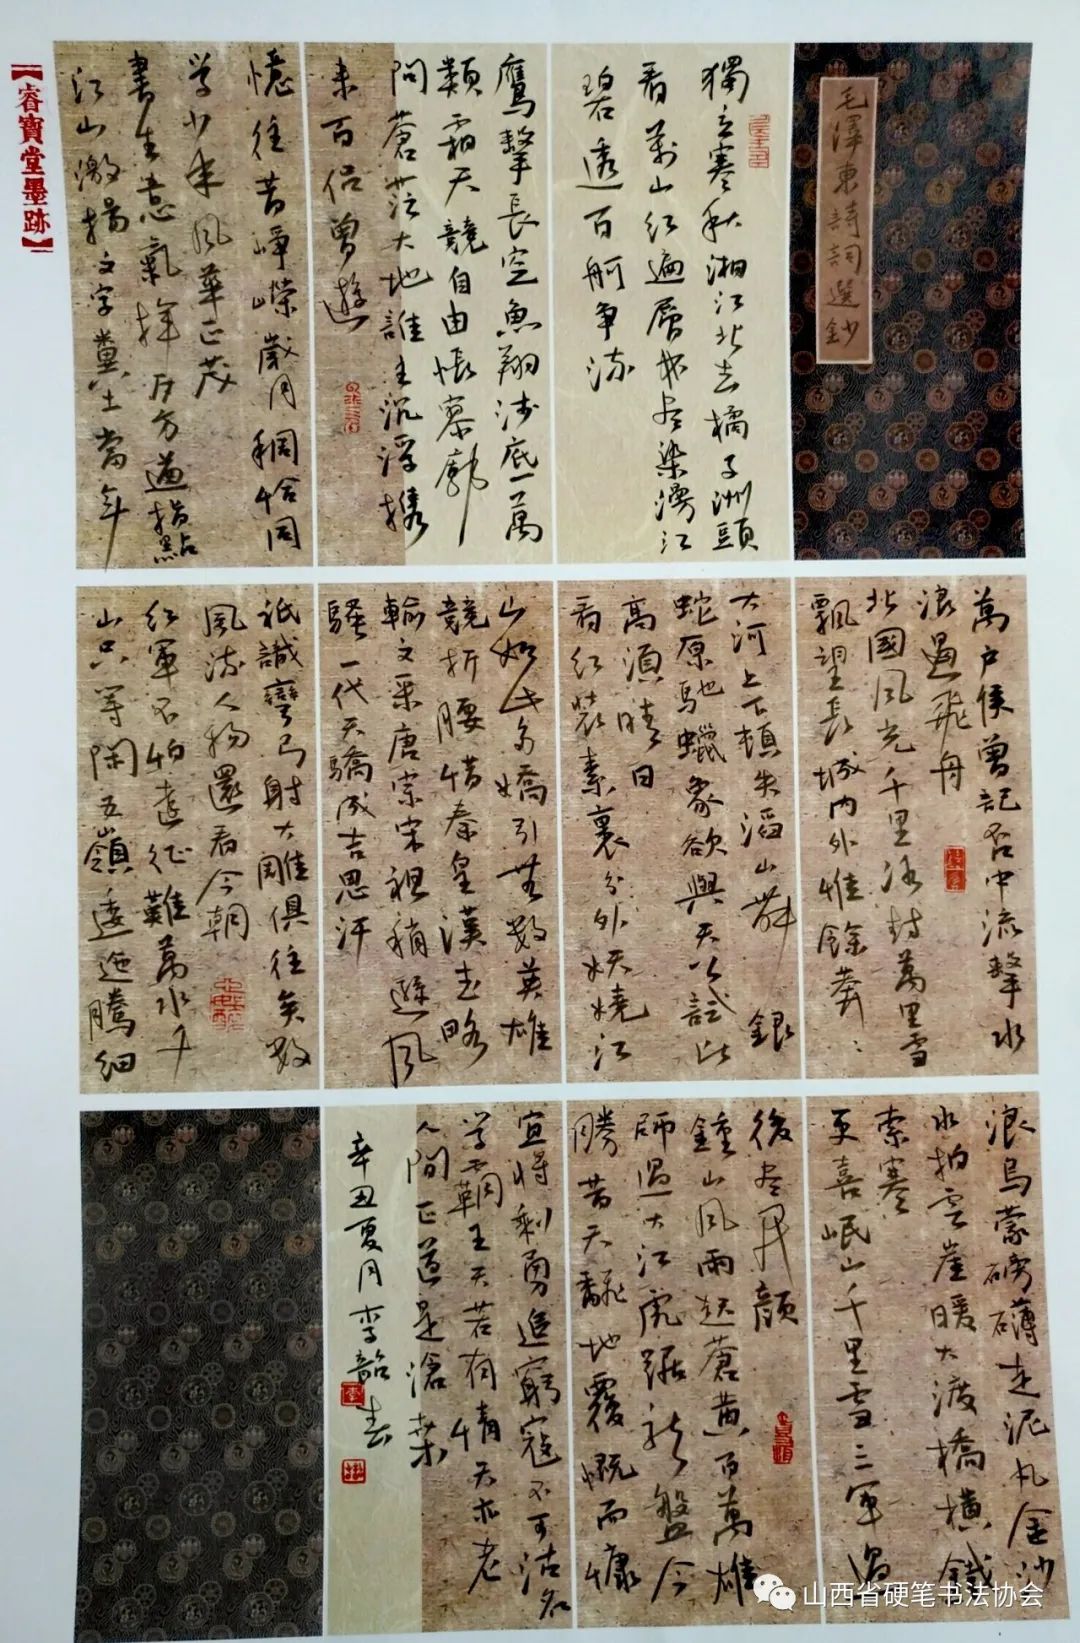 【睿寶堂墨跡】
毛澤東詩詞選鈔
獨立寒秋湘江北去橘子洲頭
看萬山红遍層林盡染漫江
碧透百舸爭流
鷹擊長空魚翔淺底萬
類霜天競自由悵寥廓
問蒼茫大地誰主沉浮攜
來百侣曾遊
憶往昔崢嶸歲月稠恰同
學少年風華正茂
書生意氣揮斥方遒指點
江山激揚文字糞土當年
萬户侯曾記否中流擊水
浪遏飛舟
北國風光千里冰封萬里雪
飄望長城內外惟餘莽〻
大河上下頓失滔山舞銀
蛇原馳蠟象欲與天公試比
高須晴日
看红裝素裹分外妖嬈江
山如此多嬌引無數英雄
競折腰惜秦皇漢武略
輸文采唐宗宋祖稍遜風
騷一代天驕成吉思汗
祇識彎弓射大雕俱往矣數
風流人物還看今朝
红軍不怕遠征難萬水千
山只等閑五嶺逶迤騰細
浪烏蒙磅礴走泥丸金沙
水拍雲崖暖大渡橋橫鐵
索寒
更喜岷山千里雪三軍過
後盡開顏
鍾山風雨起蒼黃百萬雄
師過大江虎踞龍盤今
勝昔天翻地覆慨而慷
宜將剩勇追窮寇不可沽名
學霸王天若有情天亦老
人間正道是滄桑
辛丑夏月李韶
山西省硬笔书法协会